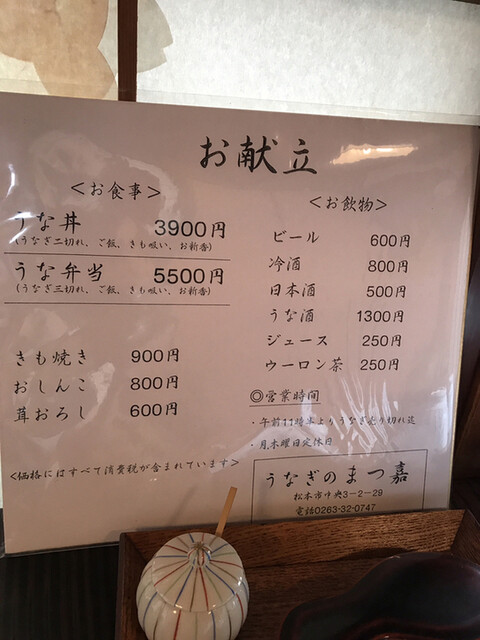 お献立
<お食事>
うな丼 3900円
(うなぎ二切れ、ご飯、きも吸い、お新香)
うな弁当 5500円
(うなぎ三切れ、ご飯、きも吸い、お新香)
きも焼き 900円
おしんこ 800円
茸おろし 600円
<価格にはすべて消費税が含まれています>
<お飲物>
ビール 600円
冷酒 800円
日本酒 500円
うな酒 1300円
ジュース 250円
ウーロン茶 250円
◎営業時間
・午前11時半よりうなぎ売り切れ迄
・月木曜日定休日
うなぎのまつ嘉
松本市中央3-2-29
電話0263-32-0747